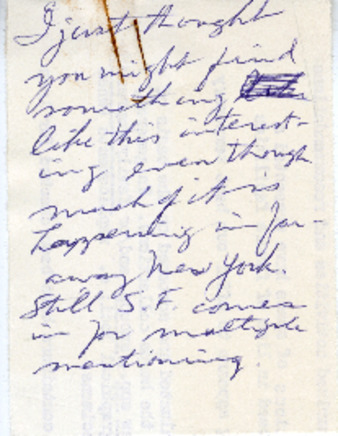 I just thought
you might find
something
like this interest-
ing even though
much of it is
happening in far-
away New York.
Still S.F. comes
in for multiple
mentioning.